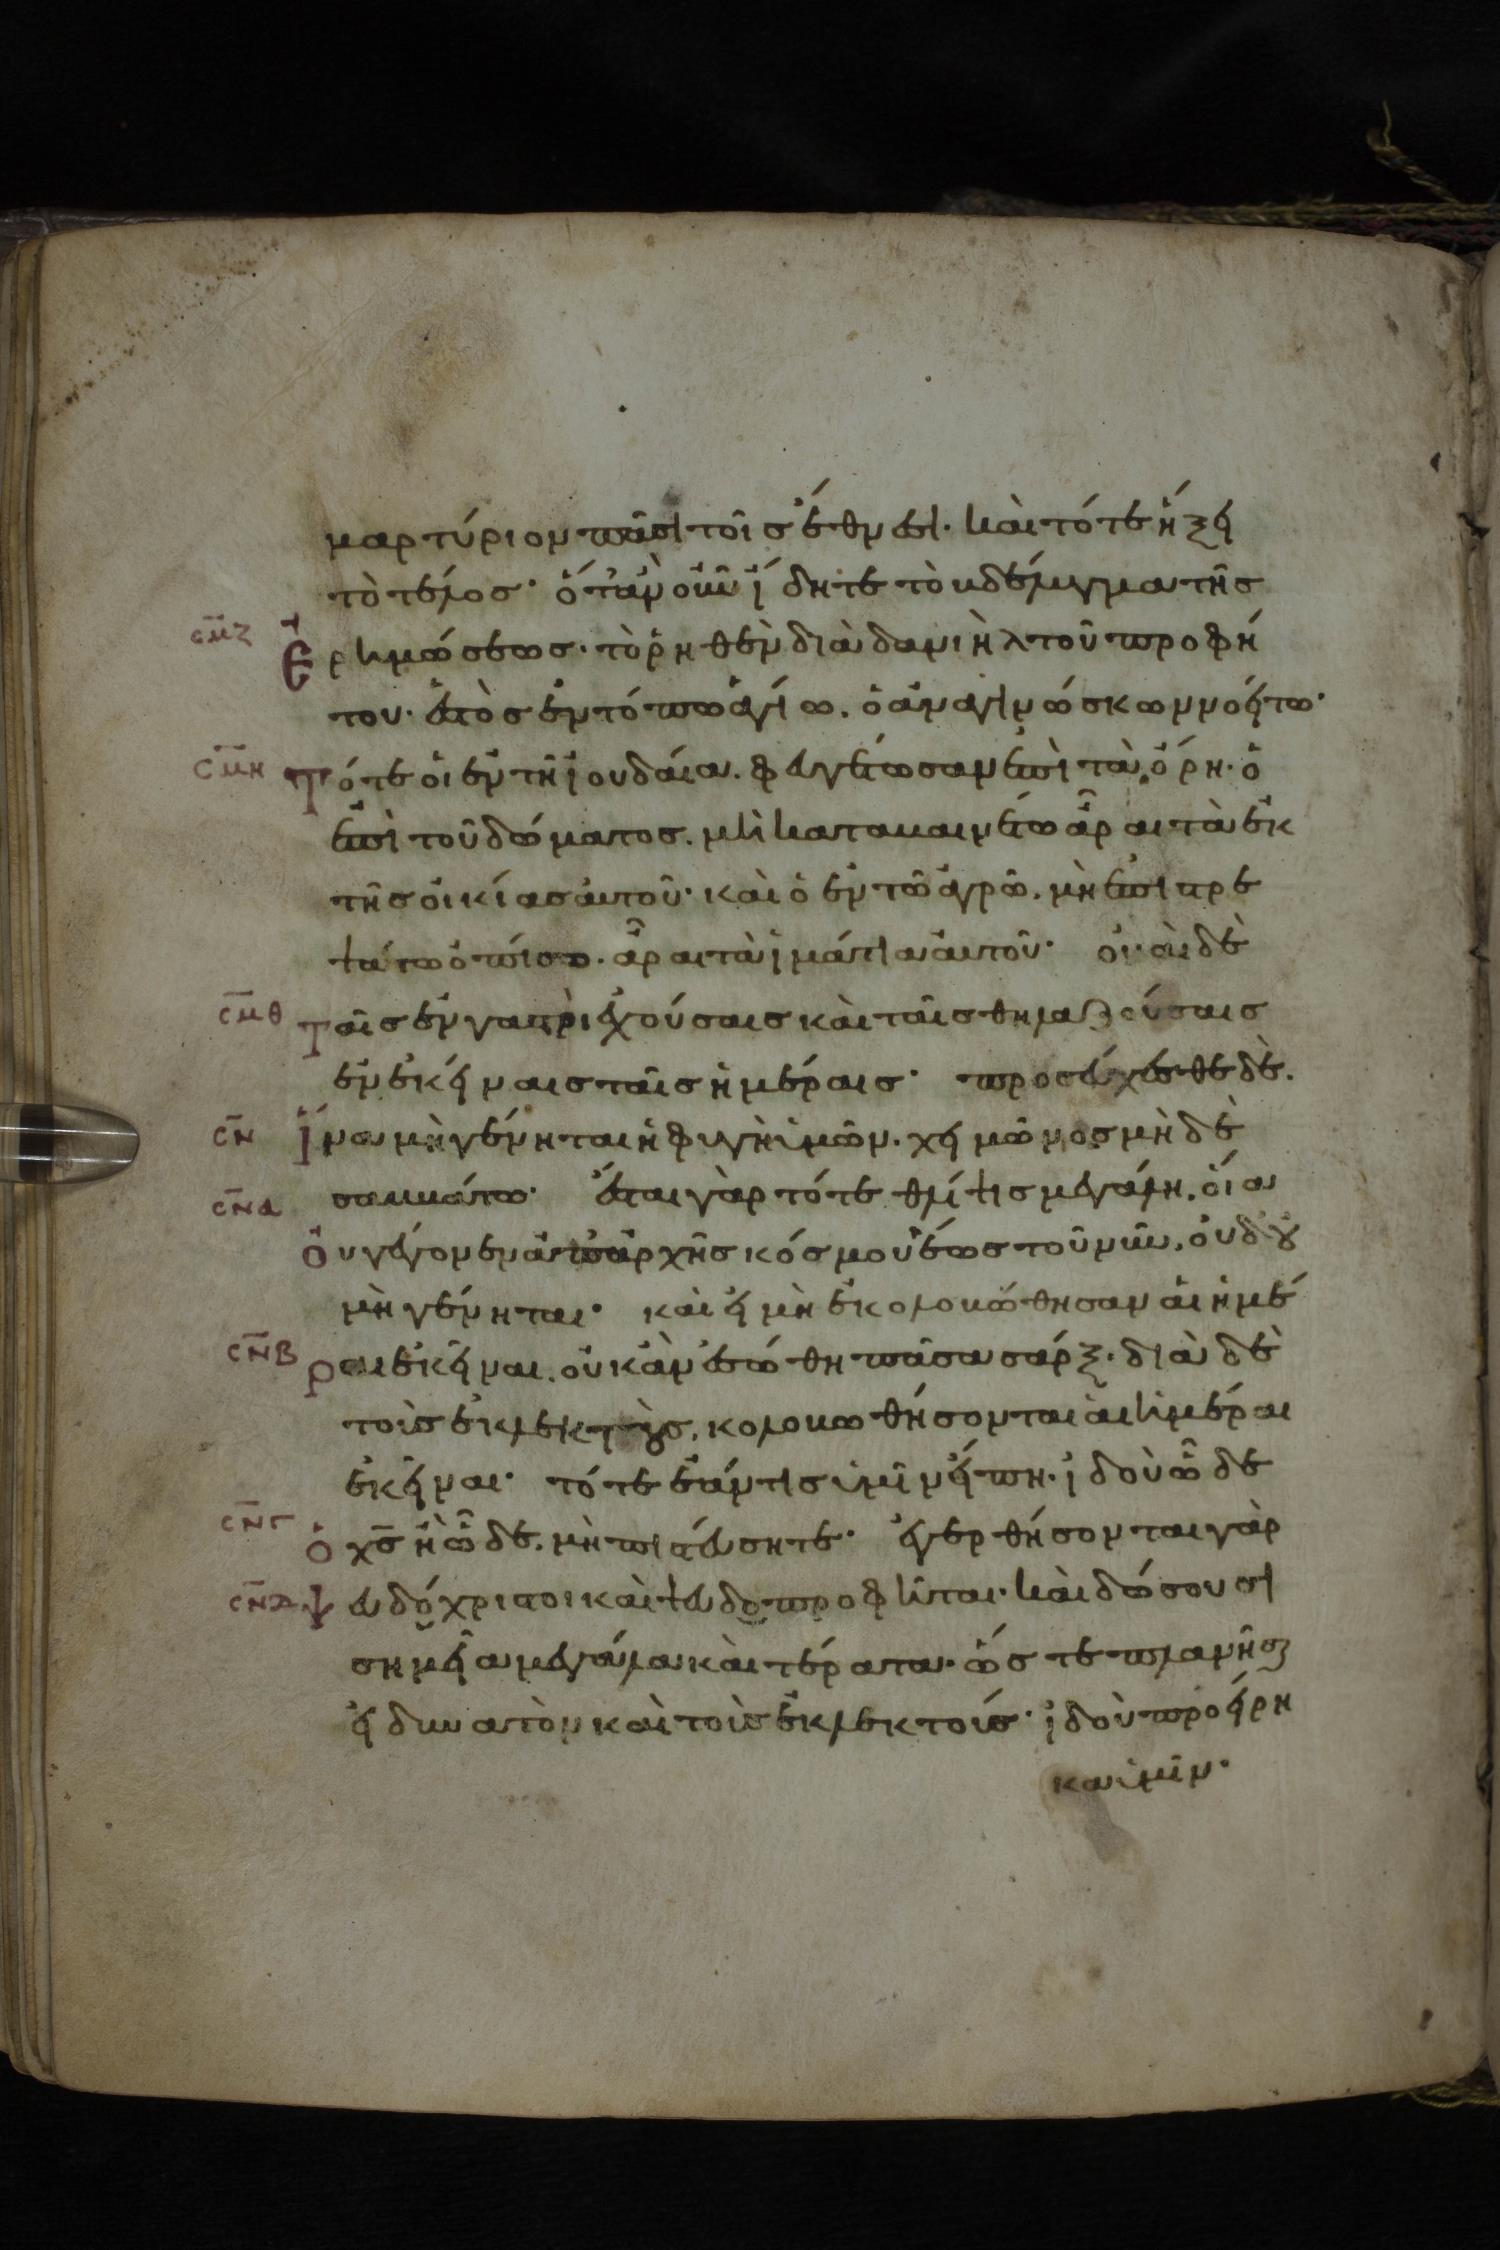 μαρτύριον πᾶσι τοῖσ ἔθνεσι· καὶ τότε ἥξει
τὸ τέλοσ· ὅταν οὖν ἴδητε τὸ βδέλυγμα τῆσ
σμζ ἐρημώσεωσ· τὸ ῥηθὲν διὰ δανιὴλ τοῦ προφή
του· ἑστὸσ ἐν τόπω ἁγίω. ὁ ἀναγινώσκων νοείτω·
σμη Τότε οἱ ἐν τῆ ἰουδαία. φευγέτωσαν ἐπὶ τὰ ὄρη· ὁ
ἐπὶ τοῦ δώματοσ. μὴ καταβαινέτω ἆραι τὰ ἐκ
τῆσ οἰκίασ αὐτοῦ· καὶ ὁ ἐν τῶ ἀγρῶ. μὴ ἐπιστρε
ψάτω ὀπίσω. ἆραι τὰ ἱμάτια αὐτοῦ· οὐαὶ δὲ
σμθ Ταῖσ ἐν γαστρὶ ἐχούσαισ καὶ ταῖσ θηλαζούσαισ
ἐν ἐκείναισ ταῖσ ἡμέραισ· προσεύχεσθε δὲ.
σν ἵνα μὴ γένηται ἡ φυγὴ ὑμῶν. χειμῶνοσ μὴδὲ
σνα σαββάτω· ἔσται γὰρ τότε θλίψισ μεγάλη. οἵα
ὀυ γέγονεν ἀπαρχῆσ κόσμου ἕωσ τοῦ νῦν. οὐδ' οὐ
μὴ γένηται· καὶ εἰ μὴ ἐκολοβώθησαν αἱ ἡμέ
σνβ ραι ἐκεῖναι. οὐκ ἂν ἐσώθη πᾶσα σάρξ· διὰ δὲ
τοὺσ ἐκλεκτοὺσ. κολοβωθήσονται αἱ ἡμέραι
ἐκεῖναι· τότε ἐάν τισ ὑμῖν εἴπη· ἰδοὺ ὧδε
σνγ ὁ χσ ἢ ὧδε. μὴ πιστεύσητε· ἐγερθήσονται γὰρ
σνδ ψευδόχριστοι καὶ ψευδοπροφῆται· καὶ δώσουσι
σημεῖα μεγάλα καὶ τέρατα· ὥστε πλανῆσαι
εἰ δυνατὸν καὶ τοὺσ ἐκλεκτούσ· ἰδοὺ προείρη
κα ὑμῖν·